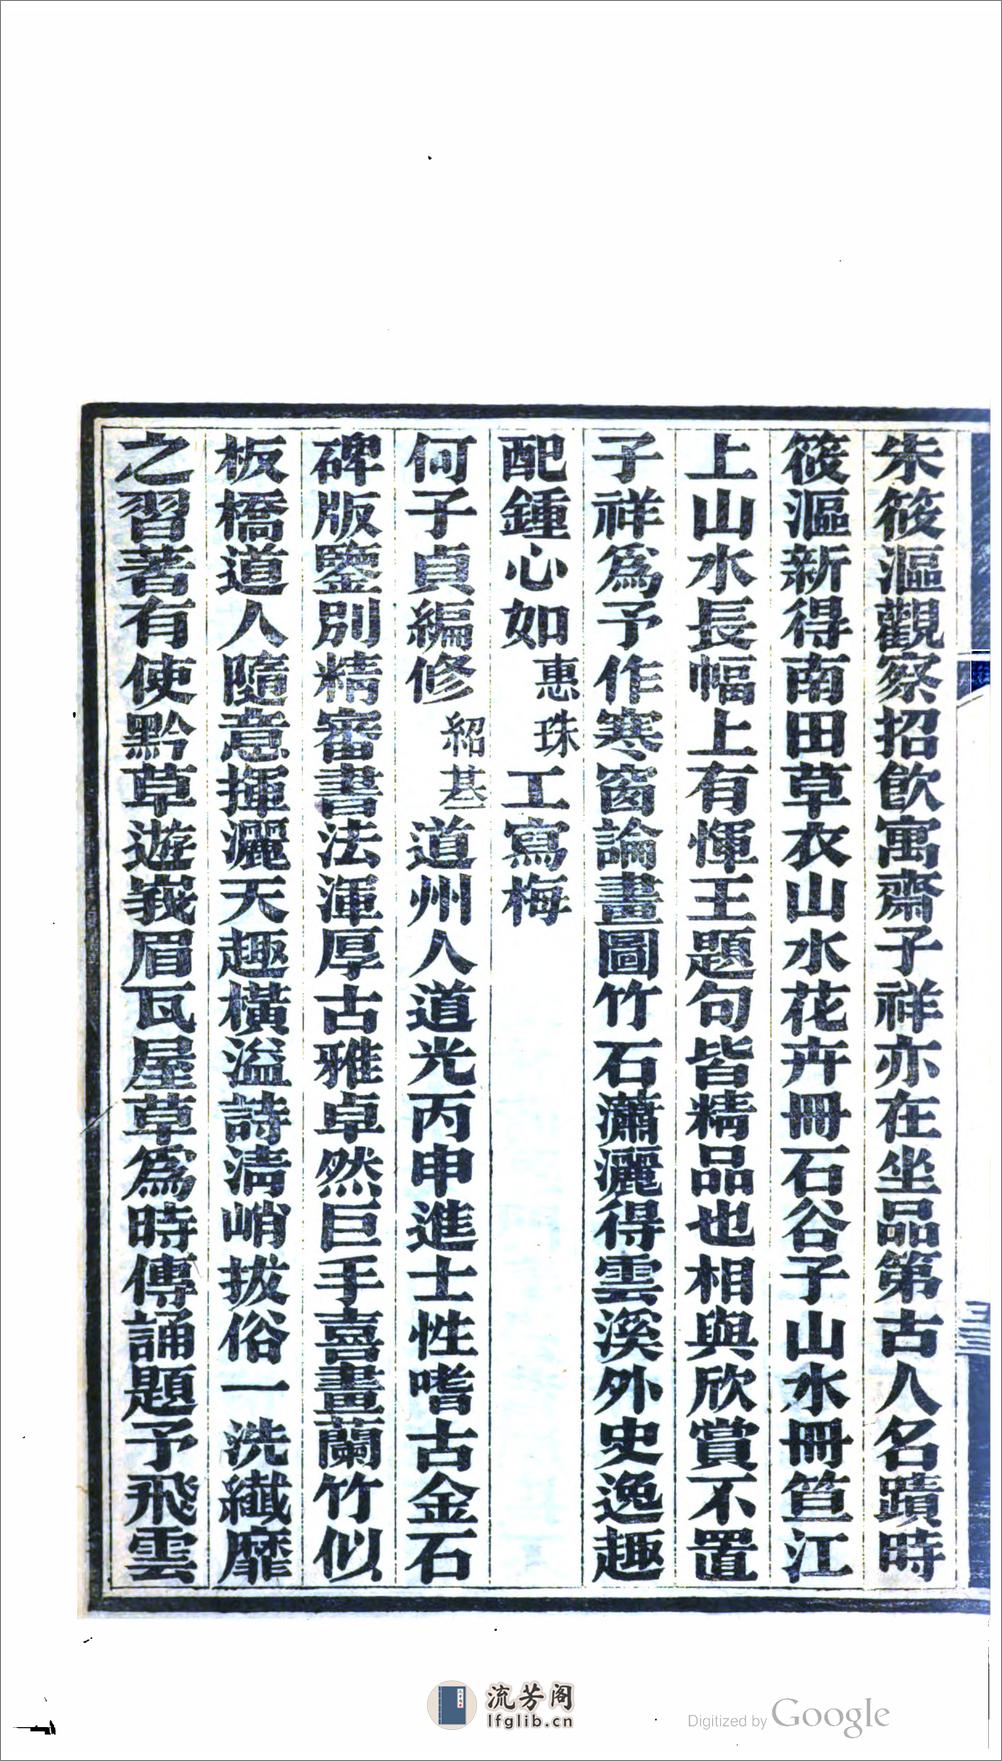 朱筱漚觀察招飲寓齋子祥亦在坐品第古人名蹟時
筱漚新得南田草衣山水花卉冊石谷子山水冊笪江
上山水長幅上有惲王題句皆精品也相與欣賞不置
子祥爲予作寒窗論畫圖竹石瀟灑得雲溪外史逸趣
配鍾心如惠珠工寫梅
何子貞編修紹基道州人道光丙申進士性嗜古金石
碑版鑒別精審書法渾厚古雅卓然巨手喜畫蘭竹似
板橋道人隨意揮灑天趣橫溢詩清峭拔俗一洗纎靡
之習著有使黔草遊峩眉瓦屋草爲時傳誦題予飛雲
流芳阁
lfglib.cn
Digitized by Google